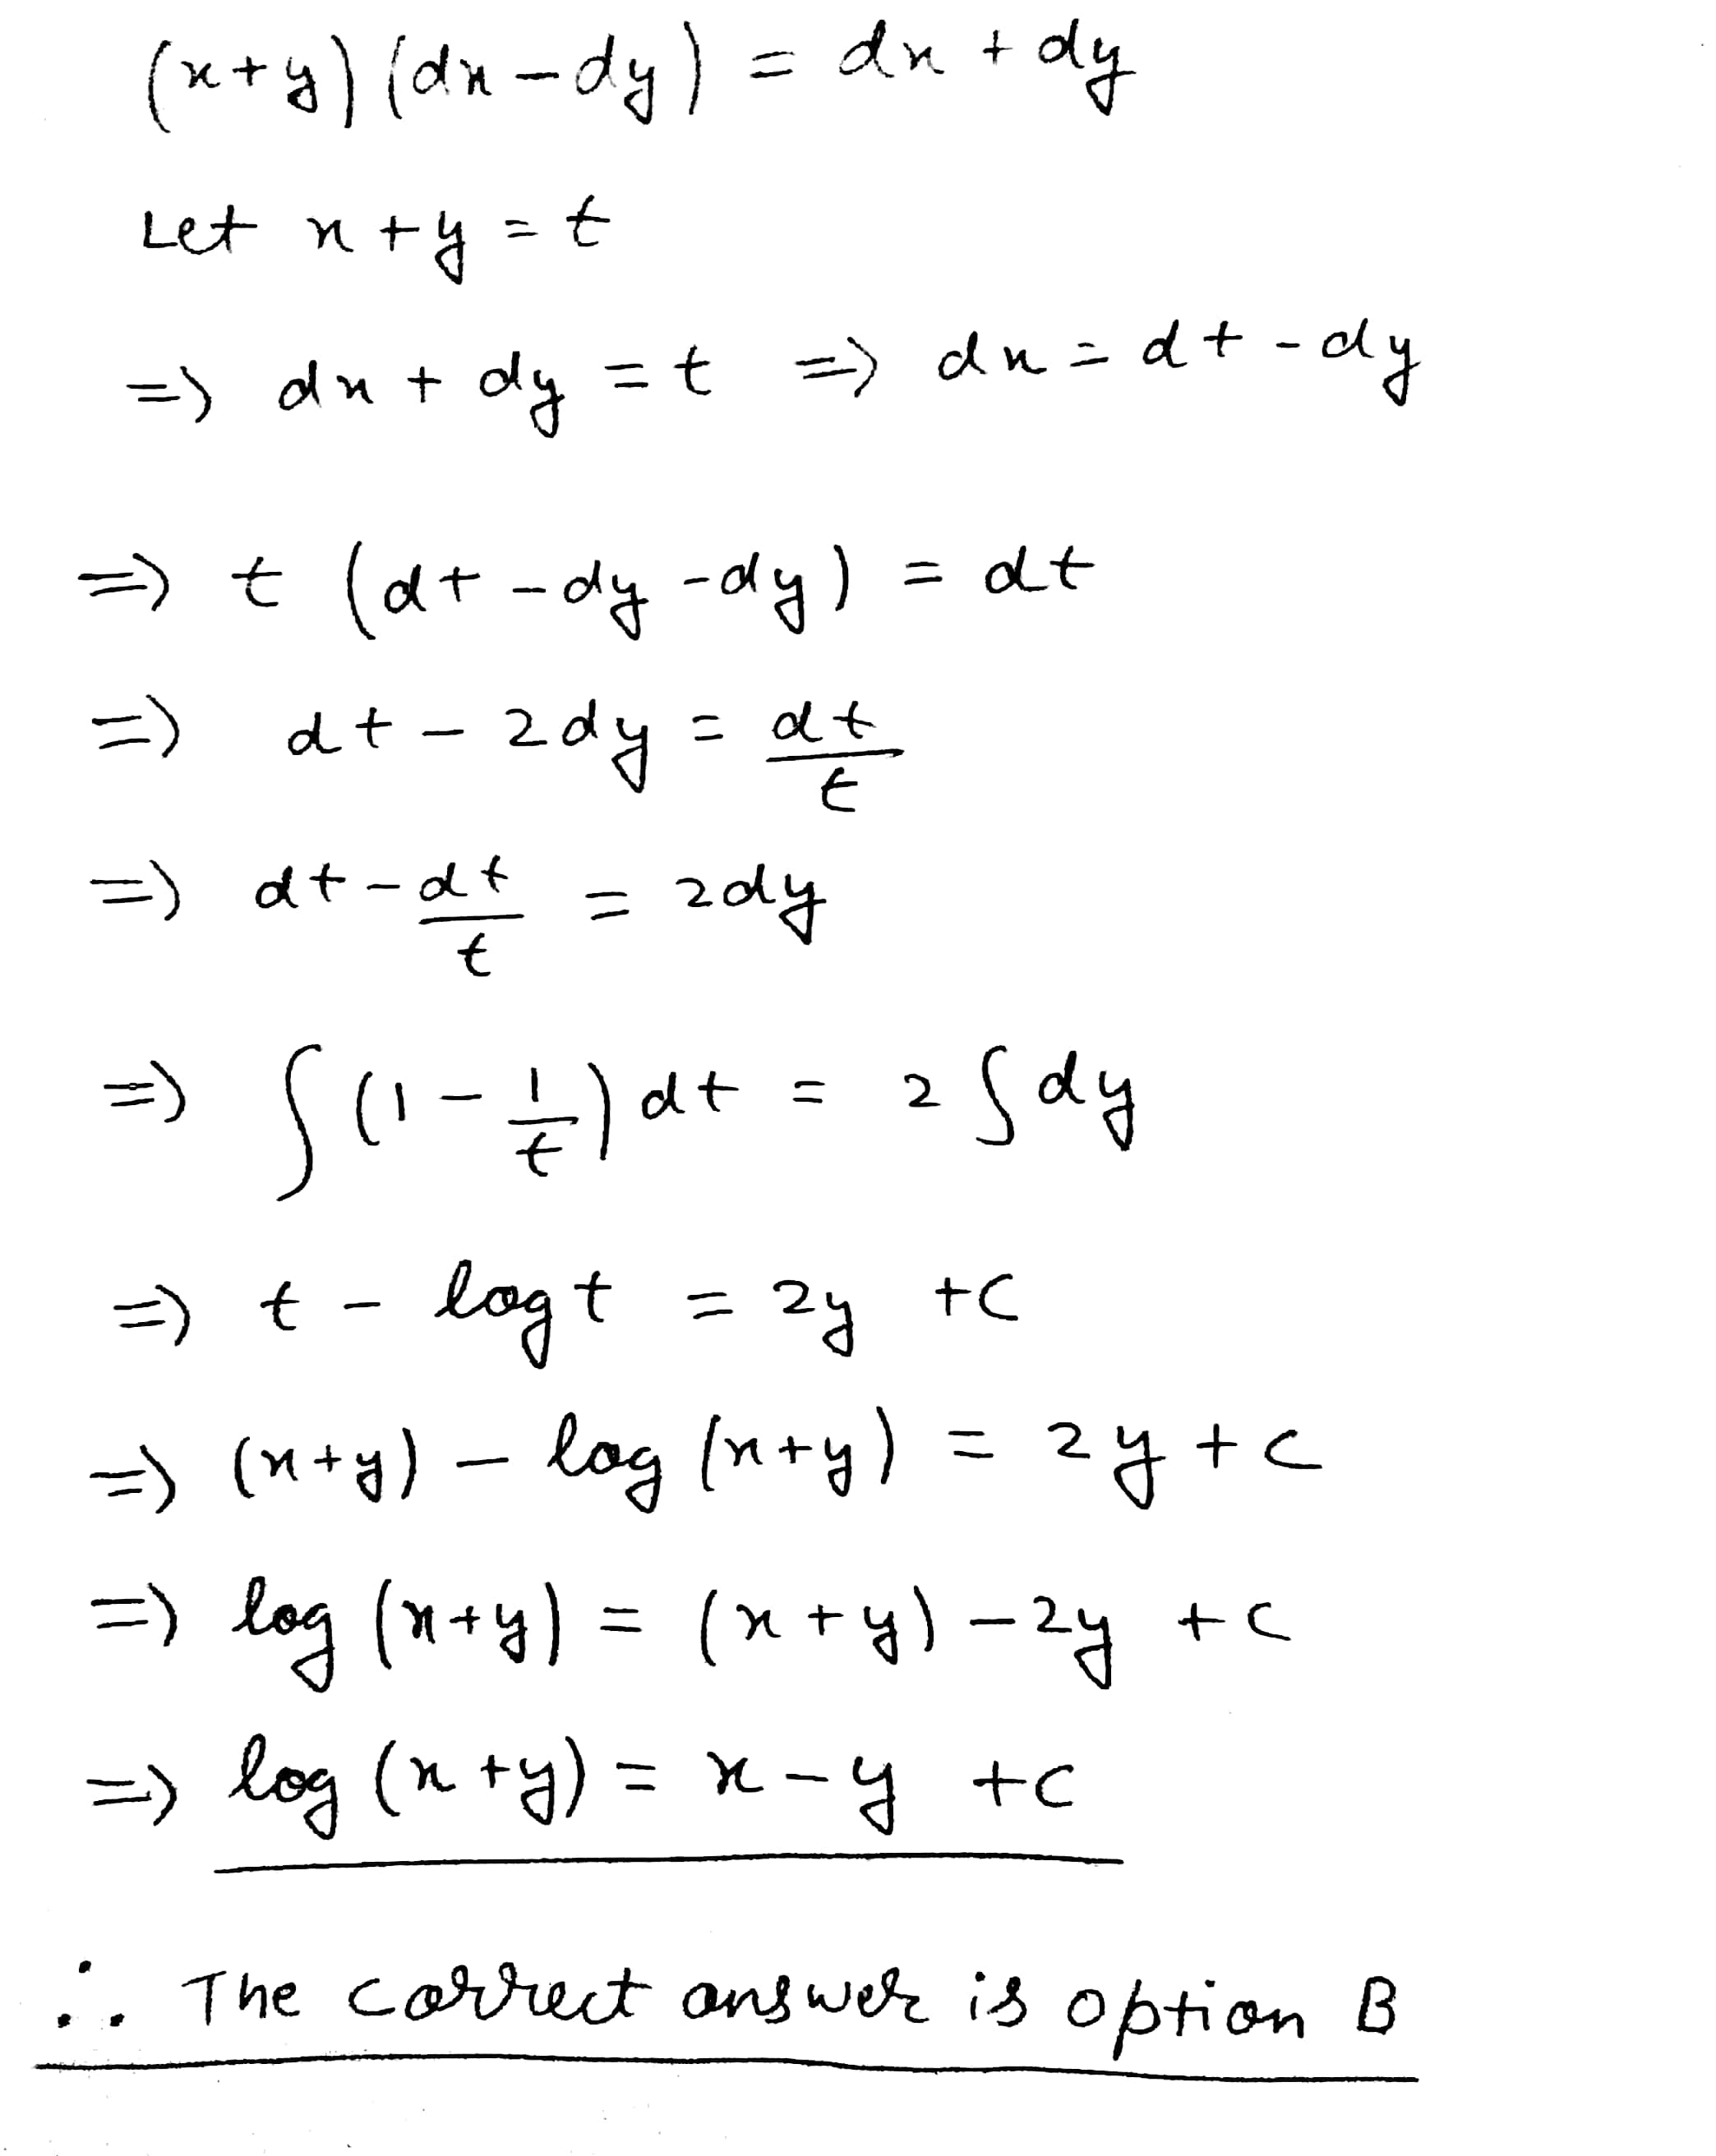 (x+y)(dx-dy) = dx+dy
Let x+y=t
=> dx+dy=t => dx=dt-dy
=> t (dt-dy-dy) = dt
=> dt-2dy = dt/t
=> dt-dt/t = 2dy
=> ∫(1-1/t)dt = 2∫dy
=> t - log t = 2y +c
=> (x+y) - log (x+y) = 2y+c
=> log (x+y) = (x+y)-2y +c
=> log (x+y) = x-y +c
∴ The correct answer is option B